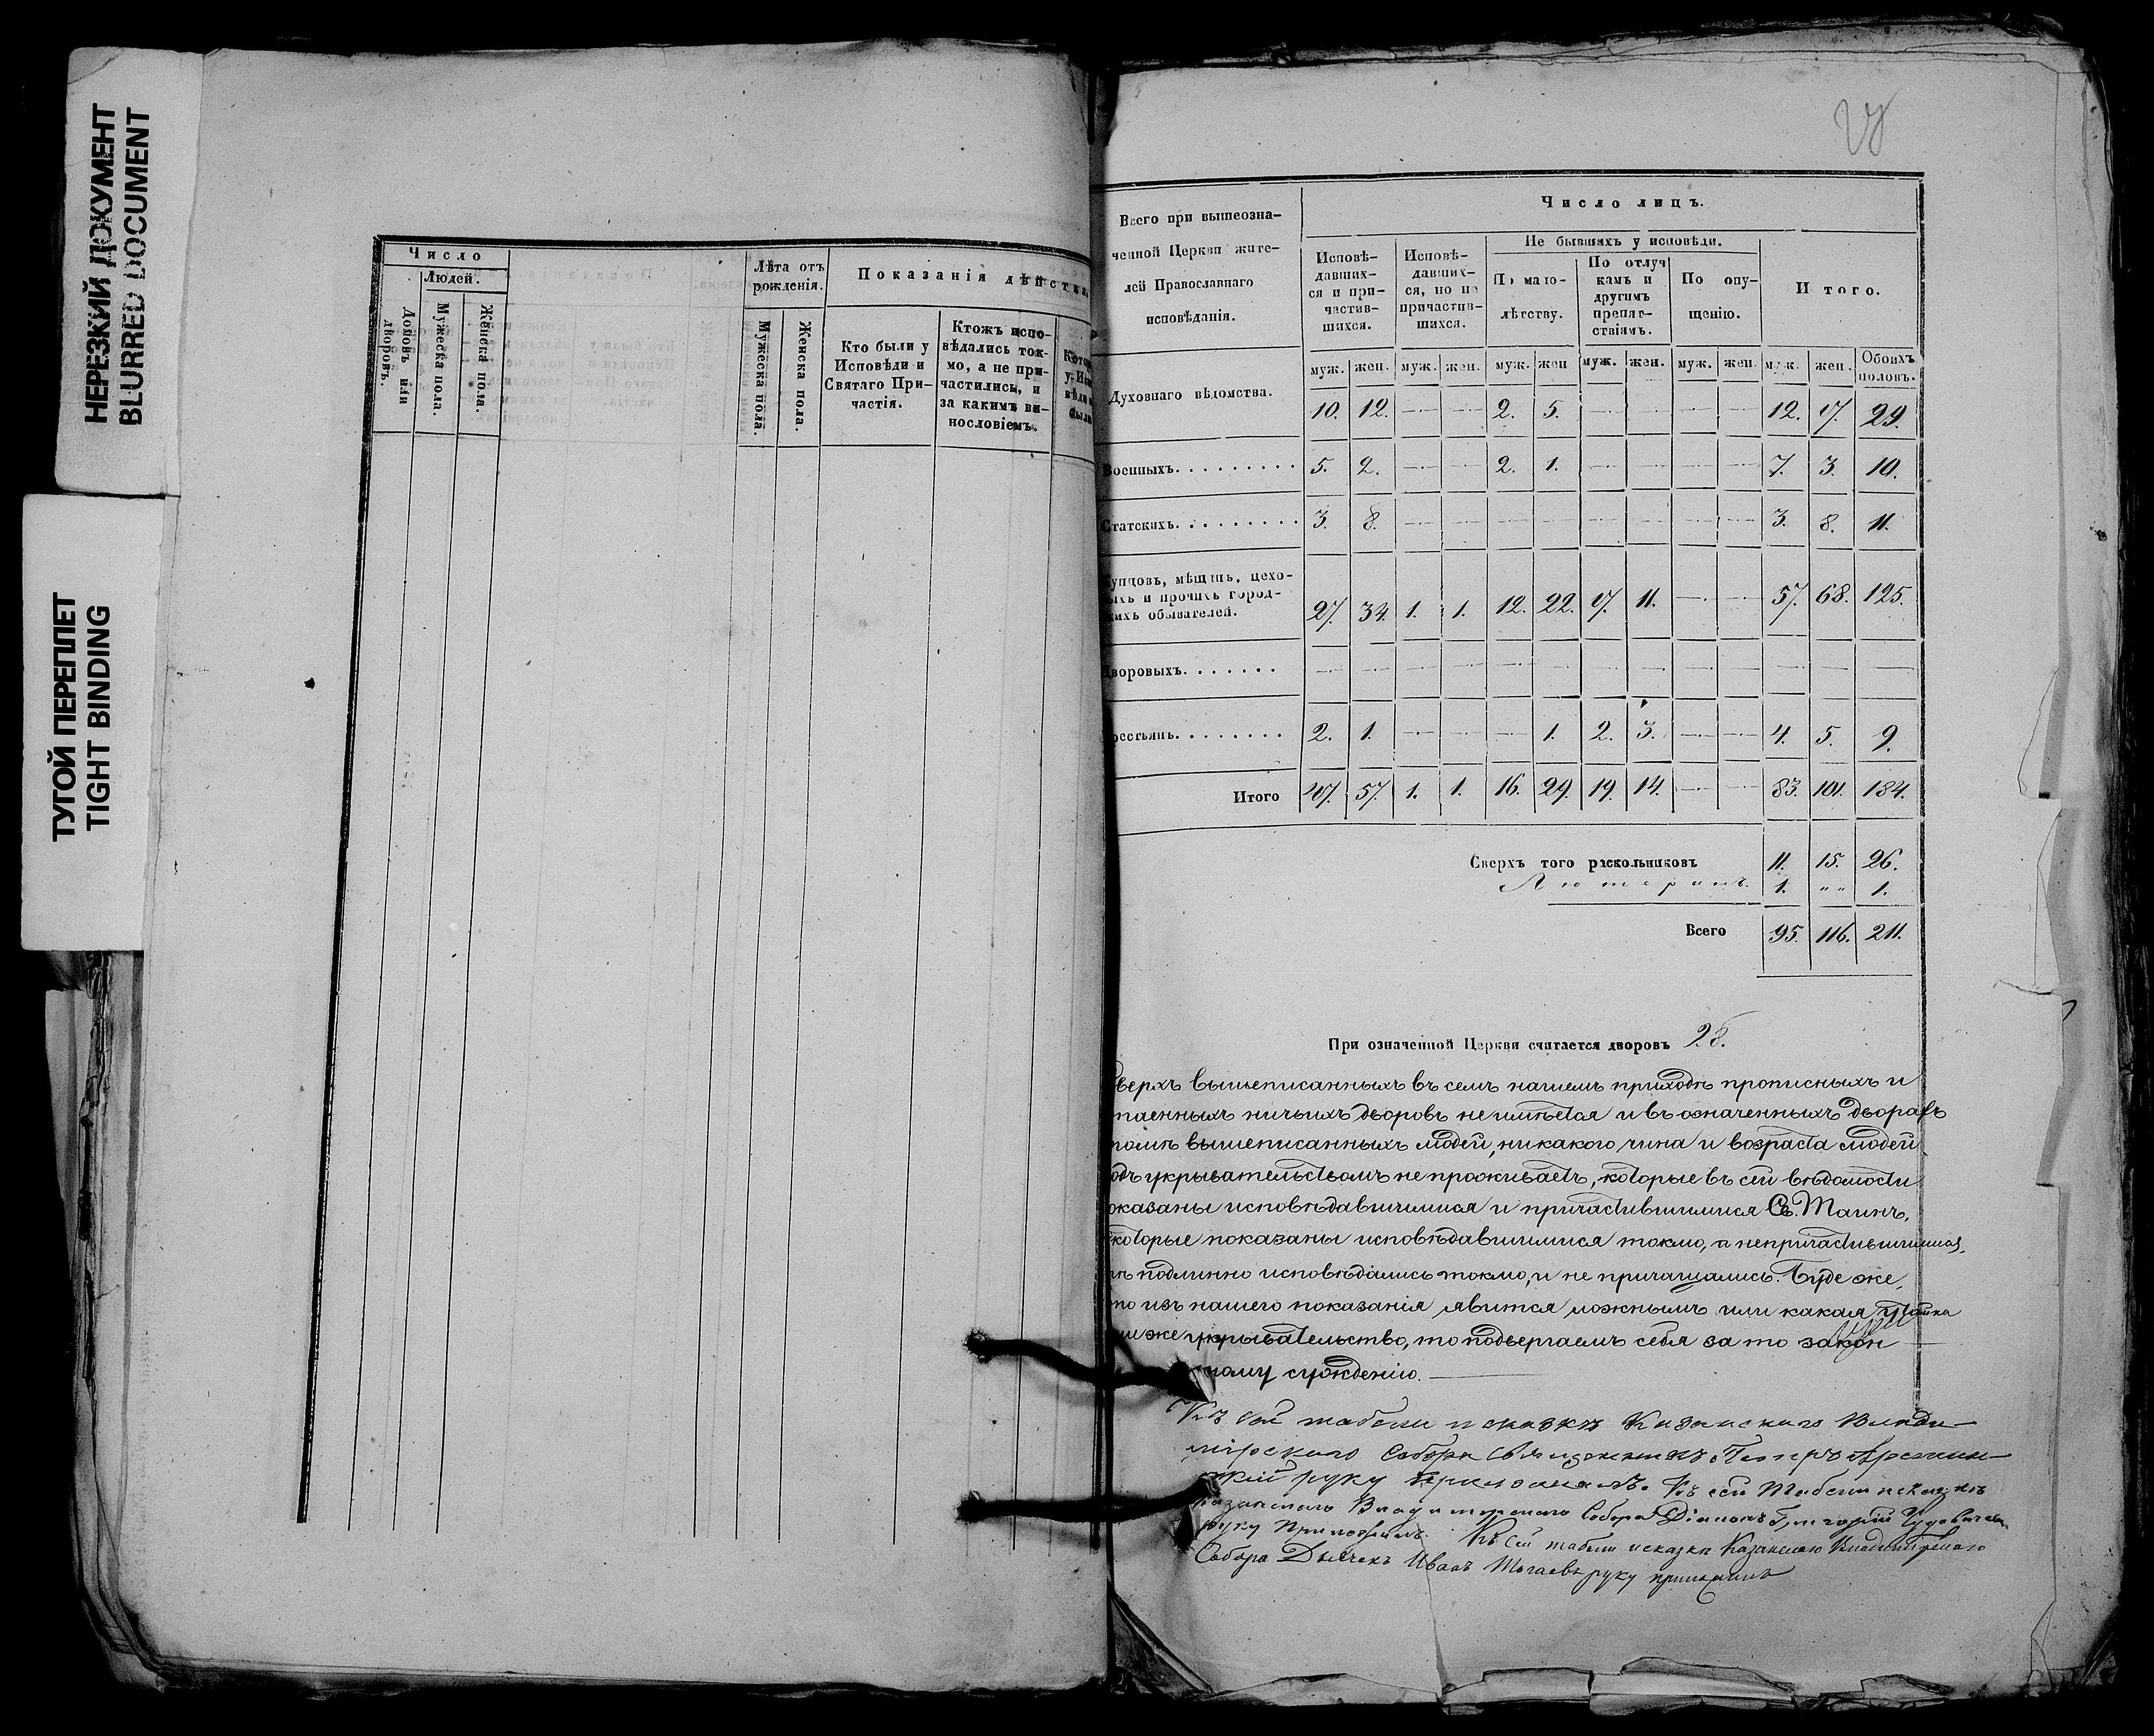 НЕРЕЗКИЙ ДОКУМЕНТ
BLURRED DOCUMENT
ТУГОЙ ПЕРЕПЛЕТ
TIGHT BINDING
Число
Людей.
Домовъ или дворовъ.
Мужеска пола.
Женска пола.
Лѣта отъ рожденія.
Мужеска пола.
Женска пола.
Показанія дѣйств
Кто были у
Исповѣди и
Святаго При-
частія.
Ктожъ испо-
вѣдались ток-
мо, а не при-
частились, и
за какимъ ви-
нословіемъ.
Всего при вышеозна-
ченной Церкви жите-
лей Православнаго
исповѣданія.
Число лицъ.
Исповѣ-
давших-
ся и при-
частив-
шихся.
Исповѣ-
давших-
ся, но не
причастив-
шихся.
Не бывшихъ у исповѣди.
По мало-
лѣтству.
По отлуч
камъ и
другимъ
препят-
ствіямъ.
По опу-
щенію.
Итого.
муж. жен. муж. жен. муж. жен муж. жен. муж. жен. муж. жен. Обоихъ половъ.
Духовнаго вѣдомства. 10. 12. — — 2. 5. — — — — 12. 17. 29.
Военныхъ. 5. 2. — — 2. 1. — — — — 7. 3. 10.
Статскихъ. 3. 8. — — — — — — — — 3. 8. 11.
упцовъ, мѣщанъ, цехо-
ыхъ и прочихъ город-
кихъ обывателей. 27. 34. 1. 1. 12. 22. 17. 11. — — 57. 68. 125.
воровыхъ. — — — — — — — — — — — — —
рестьянъ. 2. 1. — — — 1. 2. 3. — — 4. 5. 9.
Итого 47. 57. 1. 1. 16. 29. 19. 14. — — 83. 101. 184.
Сверхъ того раскольниковъ 11. 15. 26.
Лютеранъ. 1. „ „ 1.
Всего 95. 116. 211.
При означенной Церкви считается дворовъ 28.
верхъ вышеписанныхъ въ семъ нашемъ приходѣ прописныхъ и
таенныхъ ничьихъ дворовъ не имѣется и въ означенныхъ дворахъ
ромѣ вышеписанныхъ людей, никакого чина и возраста людей
одъ укрывательствомъ не проживаетъ, которые въ сей вѣдомости
оказаны исповѣдавшимися и причастившимися Св. Таинъ,
которые показаны исповѣдавшимися токмо, а непричастившимися,
ѣ подлинно исповѣдались токмо, и не причащались. Буде же,
то изъ нашего показанія явится ложнымъ или какая утайка
или же укрывательство, то подвергаемъ себя за то закон
ному сужденію.
Къ сей табели и сказкѣ Казанскаго Влади-
мірскаго Собора Священникъ Петръ
руку приложилъ. Къ сей Табели и сказкѣ
Казанскаго Владимірскаго Собора Діаконъ Григорій
руку Приложилъ. Къ сей табели и сказки Казанскаго Владимірскаго
Собора Дьячекъ Иванъ руку приложилъ